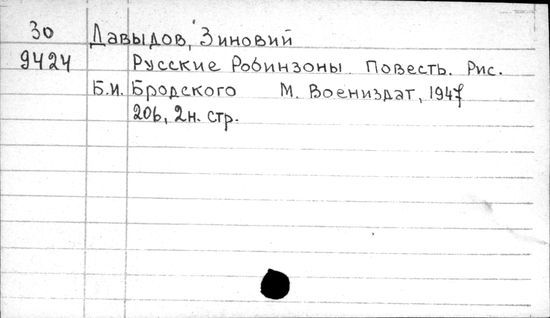 30 Давыдов, Зиновий
9424 Русские Робинзоны. Повесть. Рис.
Б.И. Бродского М. Воениздат, 1947
206, 2н. стр.